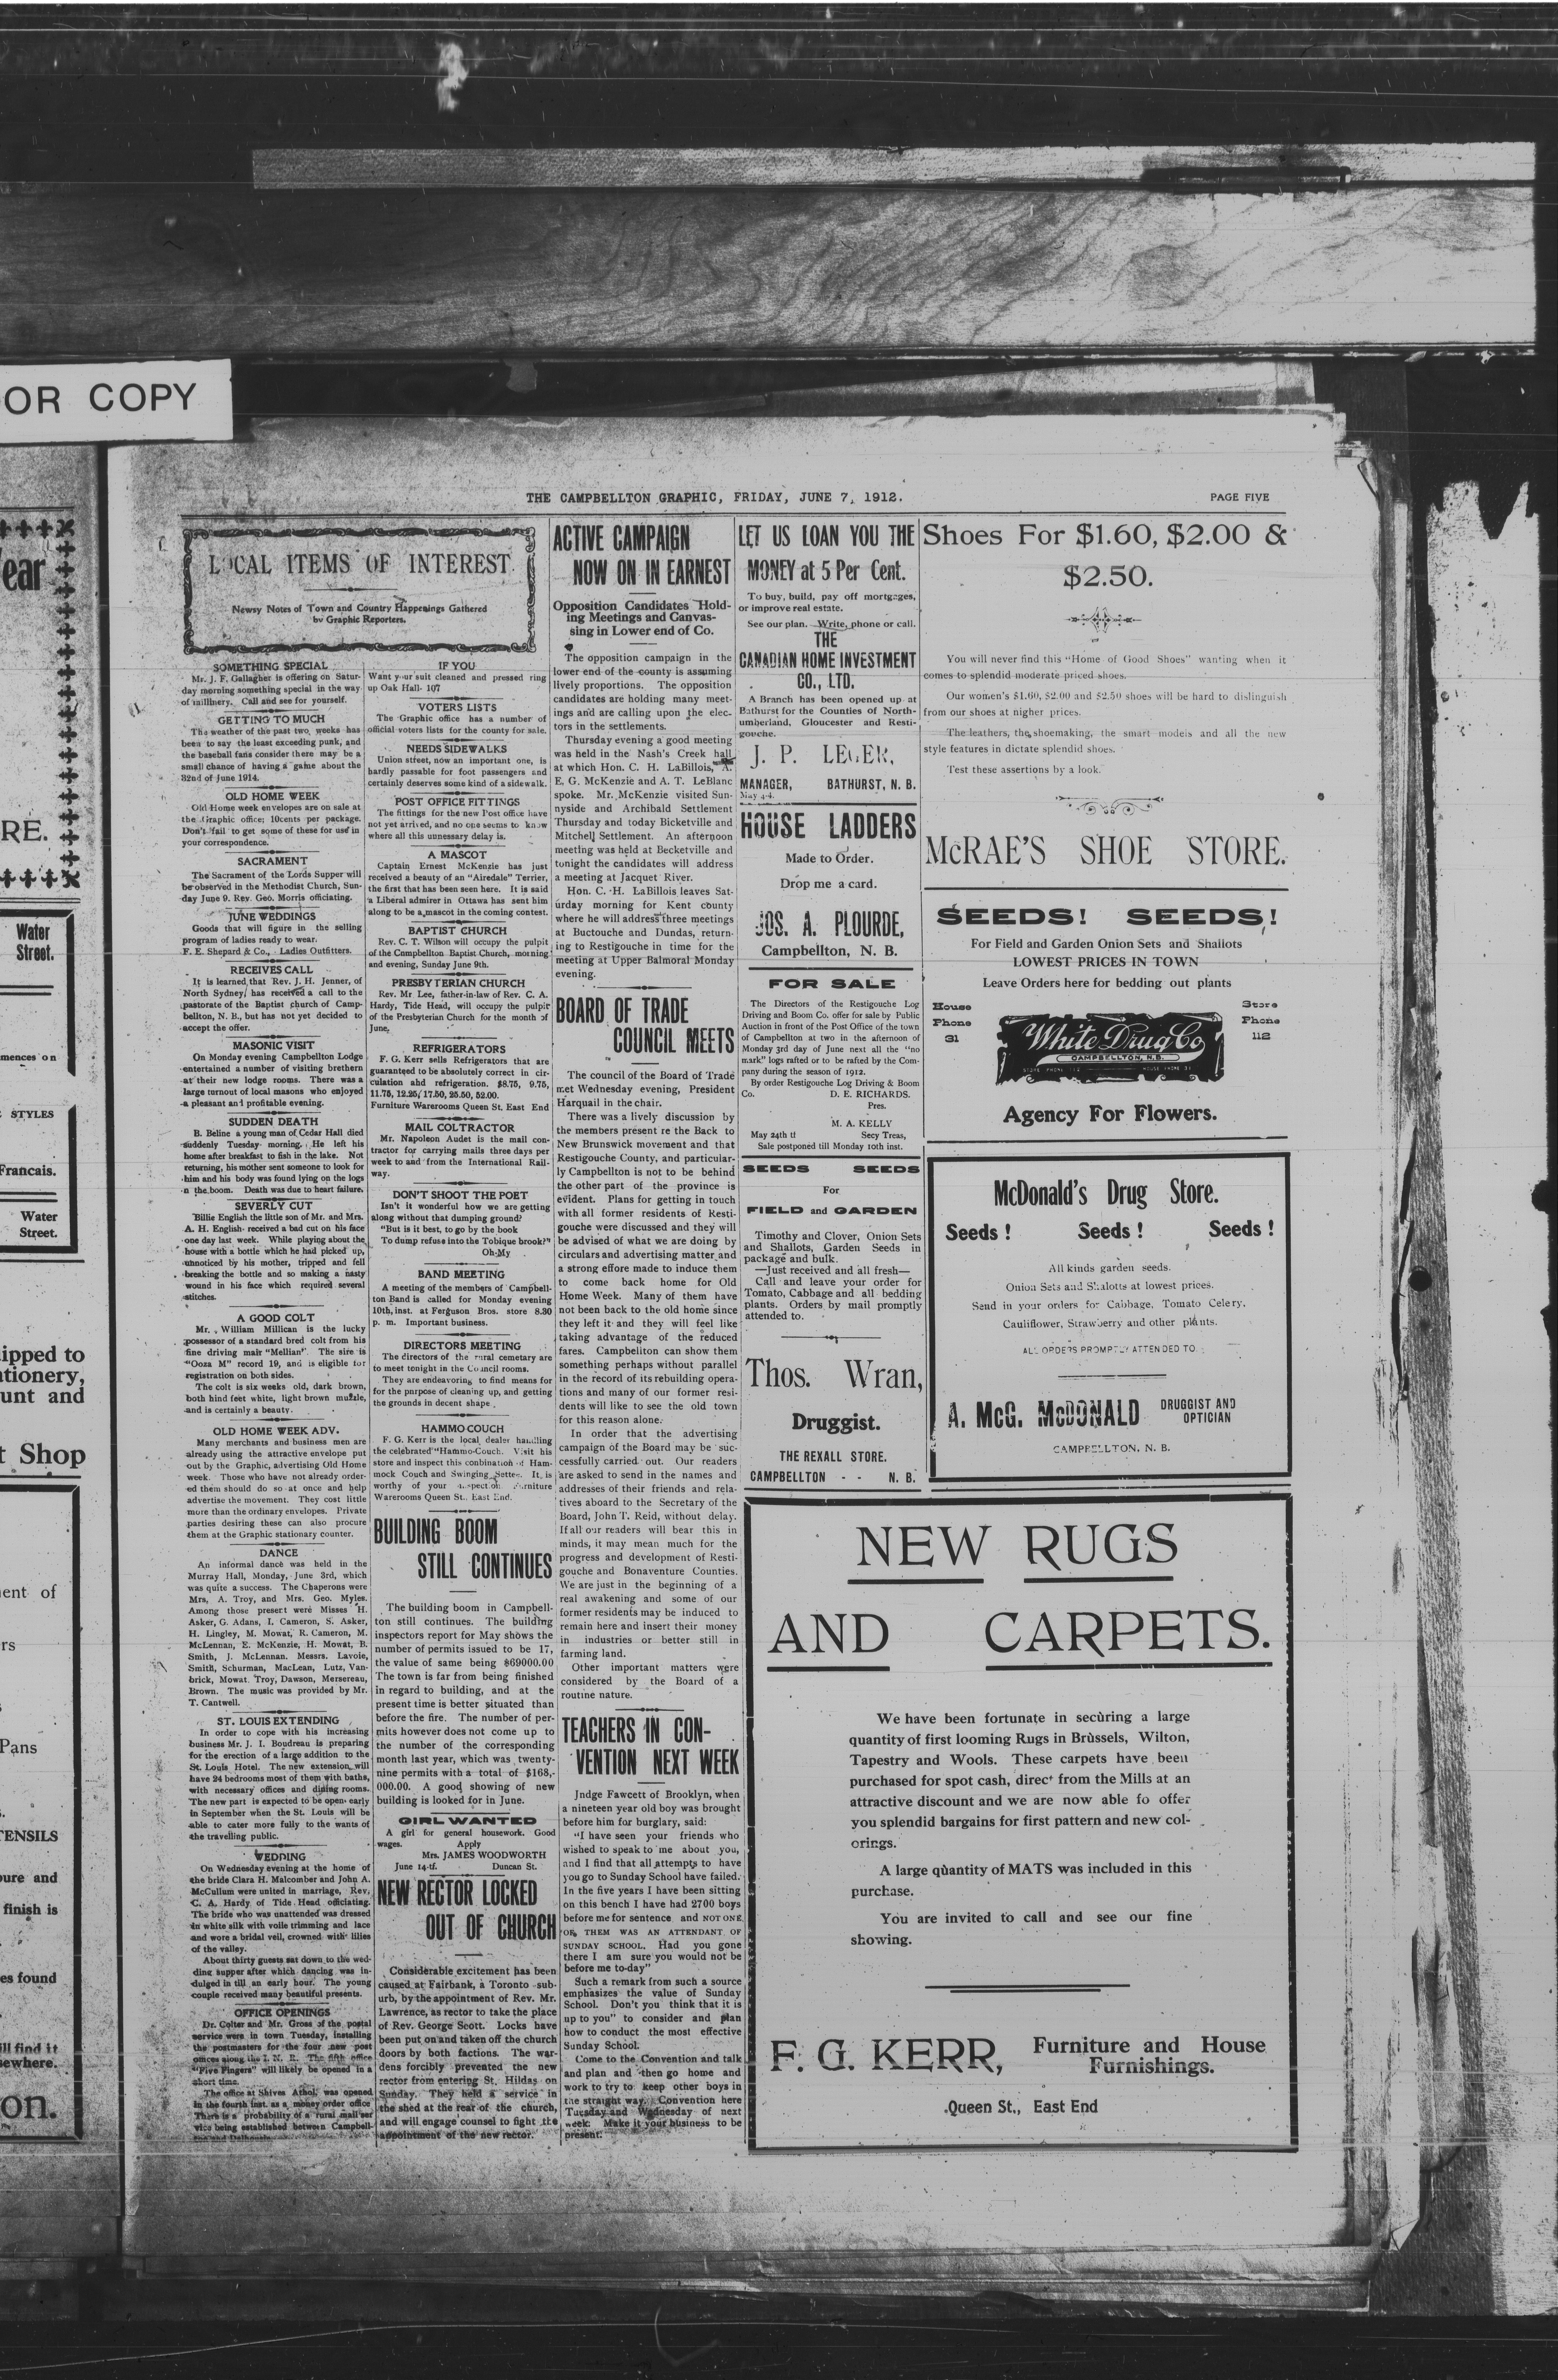 OR COPY
ear
RE.
Water
Street.
mences on
STYLES
Francais.
Water
Street.
ipped to
tionery,
unt and
t Shop
ent of
rs
Pans
TENSILS
ure and
finish is
es found
ill find it
sewhere.
on.
THE CAMPBELLTON GRAPHIC, FRIDAY, JUNE 7, 1912.
PAGE FIVE
LOCAL ITEMS OF INTEREST
Newsy Notes of Town and Country Happenings Gathered
by Graphic Reporters.
SOMETHING SPECIAL
Mr. J. F. Gallagher is offering on Satur-
day morning something special in the way
of millinery. Call and see for yourself.
GETTING TO MUCH
The weather of the past two weeks has
been to say the least exceeding punk, and
the baseball fans consider there may be a
small chance of having a game about the
32nd of June 1914.
OLD HOME WEEK
Old Home week envelopes are on sale at
the Graphic office; 10cents per package.
Don't fail to get some of these for use in
your correspondence.
SACRAMENT
The Sacrament of the Lords Supper will
be observed in the Methodist Church, Sun-
day June 9. Rev. Geo. Morris officiating.
JUNE WEDDINGS
Goods that will figure in the selling
program of ladies ready to wear.
F. E. Shepard & Co., Ladies Outfitters.
RECEIVES CALL
It is learned that Rev. J. H. Jenner, of
North Sydney, has received a call to the
pastorate of the Baptist church of Camp-
bellton, N. B., but has not yet decided to
accept the offer.
MASONIC VISIT
On Monday evening Campbellton Lodge
entertained a number of visiting brethern
at their new lodge rooms. There was a
large turnout of local masons who enjoyed
a pleasant and profitable evening.
SUDDEN DEATH
B. Beline a young man of Cedar Hall died
suddenly Tuesday morning. He left his
home after breakfast to fish in the lake. Not
returning, his mother sent someone to look for
him and his body was found lying on the logs
n the boom. Death was due to heart failure.
SEVERLY CUT
Billie English the little son of Mr. and Mrs.
A. H. English received a bad cut on his face
one day last week. While playing about the
house with a bottle which he had picked up,
unnoticed by his mother, tripped and fell
breaking the bottle and so making a nasty
wound in his face which required several
stitches.
A GOOD COLT
Mr. William Millican is the lucky
possessor of a standard bred colt from his
fine driving mair "Mellian". The sire is
"Ooza M" record 19, and is eligible for
registration on both sides.
The colt is six weeks old, dark brown,
both hind feet white, light brown muzzle,
and is certainly a beauty.
OLD HOME WEEK ADV.
Many merchants and business men are
already using the attractive envelope put
out by the Graphic, advertising Old Home
week. Those who have not already order-
ed them should do so at once and help
advertise the movement. They cost little
more than the ordinary envelopes. Private
parties desiring these can also procure
them at the Graphic stationary counter.
DANCE
An informal dance was held in the
Murray Hall, Monday, June 3rd, which
was quite a success. The Chaperons were
Mrs, A. Troy, and Mrs. Geo. Myles.
Among those present were Misses H.
Asker, G. Adans, I. Cameron, S. Asker,
H. Lingley, M. Mowat, R. Cameron, M.
McLennan, E. McKenzie, H. Mowat, B.
Smith, J. McLennan. Messrs. Lavoie,
Smith, Schurman, MacLean, Lutz, Van-
brick, Mowat, Troy, Dawson, Mersereau,
Brown. The music was provided by Mr.
T. Cantwell.
ST. LOUIS EXTENDING
In order to cope with his increasing
business Mr. J. I. Boudreau is preparing
for the erection of a large addition to the
St. Louis Hotel. The new extension will
have 24 bedrooms most of them with baths,
with necessary offices and dining rooms.
The new part is expected to be open early
in September when the St. Louis will be
able to cater more fully to the wants of
the travelling public.
WEDDING
On Wednesday evening at the home of
the bride Clara H. Malcomber and John A.
McCullum were united in marriage, Rev.
C. A. Hardy of Tide Head officiating.
The bride who was unattended was dressed
in white silk with voile trimming and lace
and wore a bridal veil, crowned with lilies
of the valley.
About thirty guests sat down to the wed-
ding supper after which dancing was in-
dulged in till an early hour. The young
couple received many beautiful presents.
OFFICE OPENINGS
Dr. Colter and Mr. Gross of the postal
service were in town Tuesday, installing
the postmasters for the four new post
offices along the I. N. R. The fifth office
"Five Fingers" will likely be opened in a
short time.
The office at Shives Athol, was opened
in the fourth inst. as a money order office
There is a probability of a rural mail ser
vice being established between Campbell-
ton and Dalhousie
IF YOU
Want your suit cleaned and pressed ring
up Oak Hall- 107
VOTERS LISTS
The Graphic office has a number of
official voters lists for the county for sale.
NEEDS SIDEWALKS
Union street, now an important one, is
hardly passable for foot passengers and
certainly deserves some kind of a sidewalk.
POST OFFICE FITTINGS
The fittings for the new Post office have
not yet arrived, and no one seems to know
where all this unnessary delay is.
A MASCOT
Captain Ernest McKenzie has just
received a beauty of an "Airedale" Terrier,
the first that has been seen here. It is said
a Liberal admirer in Ottawa has sent him
along to be a mascot in the coming contest.
BAPTIST CHURCH
Rev. C. T. Wilson will occupy the pulpit
of the Cnmpbellton Baptist Church, morning
and evening, Sunday June 9th.
PRESBYTERIAN CHURCH
Rev. Mr Lee, father-in-law of Rev. C. A.
Hardy, Tide Head, will occupy the pulpit
of the Presbyterian Church for the month of
June.
REFRIGERATORS
F. G. Kerr sells Refrigerators that are
guaranteed to be absolutely correct in cir-
culation ahd refrigeration. $8.75, 9.75,
11.75, 12.25, 17.50, 25.50, 52.00.
Furniture Warerooms Queen St. East End
MAIL COLTRACTOR
Mr. Napoleon Audet is the mail con-
tractor for carrying mails three days per
week to and from the International Rail-
way.
DON'T SHOOT THE POET
Isn't it wonderful how we are getting
along without that dumping ground?
"But is it best, to go by the book
To dump refuse into the Tobique brook?"
Oh-My
BAND MEETING
A meeting of the members of Campbell-
ton Band is called for Monday evening
10th, inst. at Ferguson Bros. store 8.30
p. m. Important business.
DIRECTORS MEETING
The directors of the rural cemetary are
to meet tonight in the Council rooms.
They are endeavoring to find means for
for the purpose of cleaning up, and getting
the grounds in decent shape
HAMMO-COUCH
F. G. Kerr is the local dealer handling
the celebrated "Hammo-Couch. Visit his
store and inspect this combination of Ham-
mock Couch and Swinging Settee. It is
worthy of your inspection. Furniture
Warerooms Queen St. East End.
BUILDING BOOM
STILL CONTINUES
The building boom in Campbell-
ton still continues. The building
inspectors report for May shows the
number of permits issued to be 17,
the value of same being $69000.00
The town is far from being finished
in regard to building, and at the
present time is better situated than
before the fire. The number of per-
mits however does not come up to
the number of the corresponding
month last year, which was twenty-
nine permits with a total of $168,-
000.00. A good showing of new
building is looked for in June.
GIRL WANTED
A girl for general housework. Good
wages. Apply
Mrs. JAMES WOODWORTH
June 14-tf. Duncan St.
NEW RECTOR LOCKED
OUT OF CHURCH
Considerable excitement has been
caused at Fairbank, a Toronto sub-
urb, by the appointment of Rev. Mr.
Lawrence, as rector to take the place
of Rev. George Scott. Locks have
been put on and taken off the church
doors by both factions. The war-
dens forcibly prevented the new
rector from entering St. Hildas on
Sunday. They held a service in
the shed at the rear of the church,
and will engage counsel to fight the
appointment of the new rector.
ACTIVE CAMPAIGN
NOW ON IN EARNEST
Opposition Candidates Hold-
ing Meetings and Canvas-
sing in Lower end of Co.
The opposition campaign in the
lower end of the county is assuming
lively proportions. The opposition
candidates are holding many meet-
ings and are calling upon the elec-
tors in the settlements.
Thursday evening a good meeting
was held in the Nash's Creek hall
at which Hon. C. H. LaBillois, A.
E. G. McKenzie and A. T. LeBlanc
spoke. Mr. McKenzie visited Sun-
nyside and Archibald Settlement
Thursday and today Bicketville and
Mitchell Settlement. An afternoon
meeting was held at Becketville and
tonight the candidates will address
a meeting at Jacquet River.
Hon. C. H. LaBillois leaves Sat-
urday morning for Kent county
where he will address three meetings
at Buctouche and Dundas, return-
ing to Restigouche in time for the
meeting at Upper Balmoral Monday
evening.
BOARD OF TRADE
COUNCIL MEETS
The council of the Board of Trade
met Wednesday evening, President
Harquail in the chair.
There was a lively discussion by
the members present re the Back to
New Brunswick movement and that
Restigouche County, and particular-
ly Campbellton is not to be behind
the other part of the province is
evident. Plans for getting in touch
with all former residents of Resti-
gouche were discussed and they will
be advised of what we are doing by
circulars and advertising matter and
a strong effore made to induce them
to come back home for Old
Home Week. Many of them have
not been back to the old home since
they left it and they will feel like
taking advantage of the reduced
fares. Campbellton can show them
something perhaps without parallel
in the record of its rebuilding opera-
tions and many of our former resi-
dents will like to see the old town
for this reason alone.
In order that the advertising
campaign of the Board may be suc-
cessfully carried out. Our readers
are asked to send in the names and
addresses of their friends and rela-
tives aboard to the Secretary of the
Board, John T. Reid, without delay.
If all our readers will bear this in
minds, it may mean much for the
progress and development of Resti-
gouche and Bonaventure Counties.
We are just in the beginning of a
real awakening and some of our
former residents may be induced to
remain here and insert their money
in industries or better still in
farming land.
Other important matters were
considered by the Board of a
routine nature.
TEACHERS IN CON-
VENTION NEXT WEEK
Jndge Fawcett of Brooklyn, when
a nineteen year old boy was brought
before him for burglary, said:
"I have seen your friends who
wished to speak to me about you,
and I find that all attempts to have
you go to Sunday School have failed.
In the five years I have been sitting
on this bench I have had 2700 boys
before me for sentence and NOT ONE
OF THEM WAS AN ATTENDANT OF
SUNDAY SCHOOL. Had you gone
there I am sure you would not be
before me to-day"
Such a remark from such a source
emphasizes the value of Sunday
School. Don't you think that it is
up to you" to consider and plan
how to conduct the most effective
Sunday School.
Come to the Convention and talk
and plan and then go home and
work to try to keep other boys in
the straight way. Convention here
Tuesday and Wednesday of next
week. Make it your business to be
present.
LET US LOAN YOU THE
MONEY at 5 Per Cent.
To buy, build, pay off mortgages,
or improve real estate.
See our plan. Write, phone or call.
THE
CANADIAN HOME INVESTMENT
CO., LTD.
A Branch has been opened up at
Bathurst for the Counties of North-
umberland, Gloucester and Resti-
gouche.
J. P. LEGER,
MANAGER, BATHURST, N. B.
May 4-4.
HOUSE LADDERS
Made to Order.
Drop me a card.
JOS. A. PLOURDE,
Campbellton, N. B.
FOR SALE
The Directors of the Restigouche Log
Driving and Boom Co. offer for sale by Public
Auction in front of the Post Office of the town
of Campbellton at two in the afternoon of
Monday 3rd day of June next all the "no
mark" logs rafted or to be rafted by the Com-
pany during the season of 1912.
By order Restigouche Log Driving & Boom
Co. D. E. RICHARDS.
Pres.
M. A. KELLY
May 24th tf Secy Treas,
Sale postponed till Monday 10th inst.
SEEDS SEEDS
For
FIELD and GARDEN
Timothy and Clover, Onion Sets
and Shallots, Garden Seeds in
package and bulk.
—Just received and all fresh—
Call and leave your order for
Tomato, Cabbage and all bedding
plants. Orders by mail promptly
attended to.
Thos. Wran,
Druggist.
THE REXALL STORE.
CAMPBELLTON - - N. B.
Shoes For $1.60, $2.00 &
$2.50.
You will never find this "Home of Good Shoes" wanting when it
comes to splendid moderate priced shoes.
Our women's $1.60, $2.00 and $2.50 shoes will be hard to distinguish
from our shoes at nigher prices.
The leathers, the shoemaking, the smart models and all the new
style features in dictate splendid shoes.
Test these assertions by a look.
McRAE'S SHOE STORE.
SEEDS! SEEDS!
For Field and Garden Onion Sets and Shallots
LOWEST PRICES IN TOWN
Leave Orders here for bedding out plants
House
Phone
31
White Drug Co
CAMPBELLTON, N.B.
STORE PHONE 112 HOUSE PHONE 31
Store
Phone
112
Agency For Flowers.
McDonald's Drug Store.
Seeds ! Seeds ! Seeds !
All kinds garden seeds.
Onion Sets and Shalotts at lowest prices.
Send in your orders for Cabbage, Tomato Celery,
Cauliflower, Strawberry and other plants.
ALL ORDERS PROMPTLY ATTENDED TO
A. McG. McDONALD
DRUGGIST AND
OPTICIAN
CAMPBELLTON, N. B.
NEW RUGS
AND CARPETS.
We have been fortunate in securing a large
quantity of first looming Rugs in Brussels, Wilton,
Tapestry and Wools. These carpets have been
purchased for spot cash, direct from the Mills at an
attractive discount and we are now able fo offer
you splendid bargains for first pattern and new col-
orings.
A large quantity of MATS was included in this
purchase.
You are invited to call and see our fine
showing.
F. G. KERR,
Furniture and House
Furnishings.
Queen St., East End